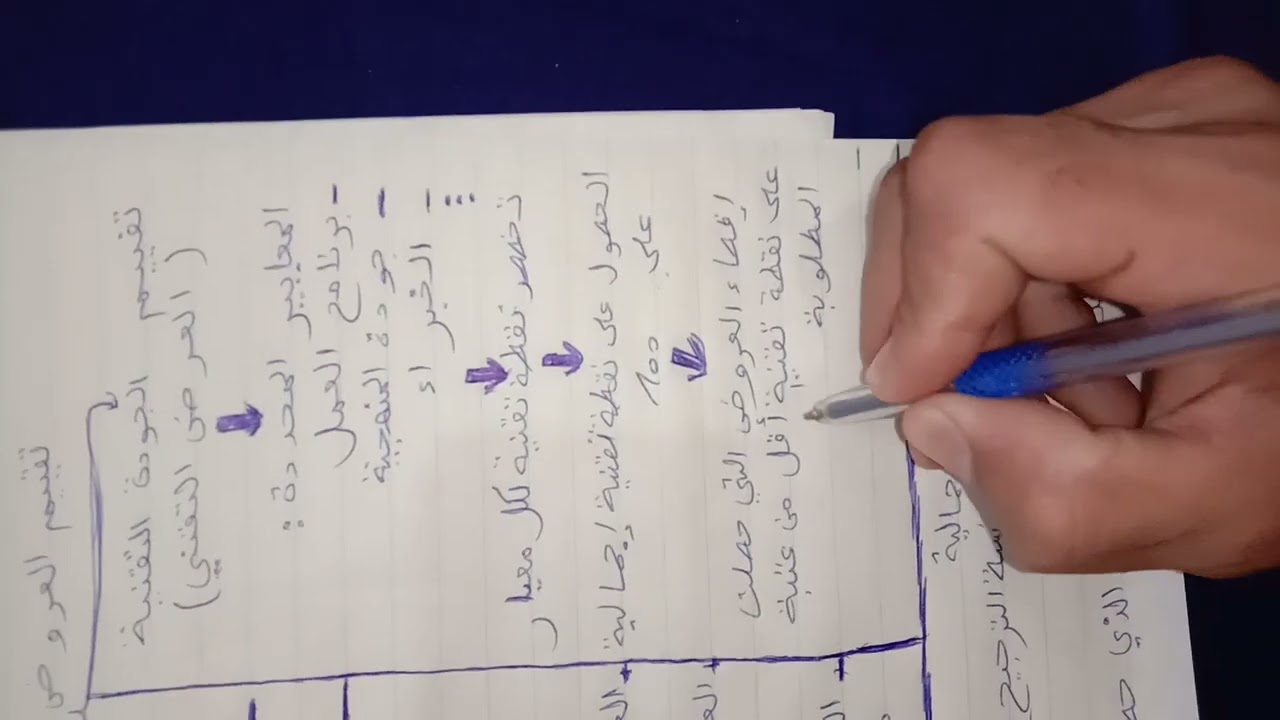 تقييم العروض
تقييم الجودة التقنية
(العرض التقني)
المعايير المحددة:
- برنامج العمل
- جودة المنهجية
- الخبراء
تخصص نقطة تقنية لكل معيار
الحصول على نقطة تقنية إجمالية
على 100
إقصاء العروض التي حصلت
على نقطة تقنية أقل من عتبة
المطلوبة